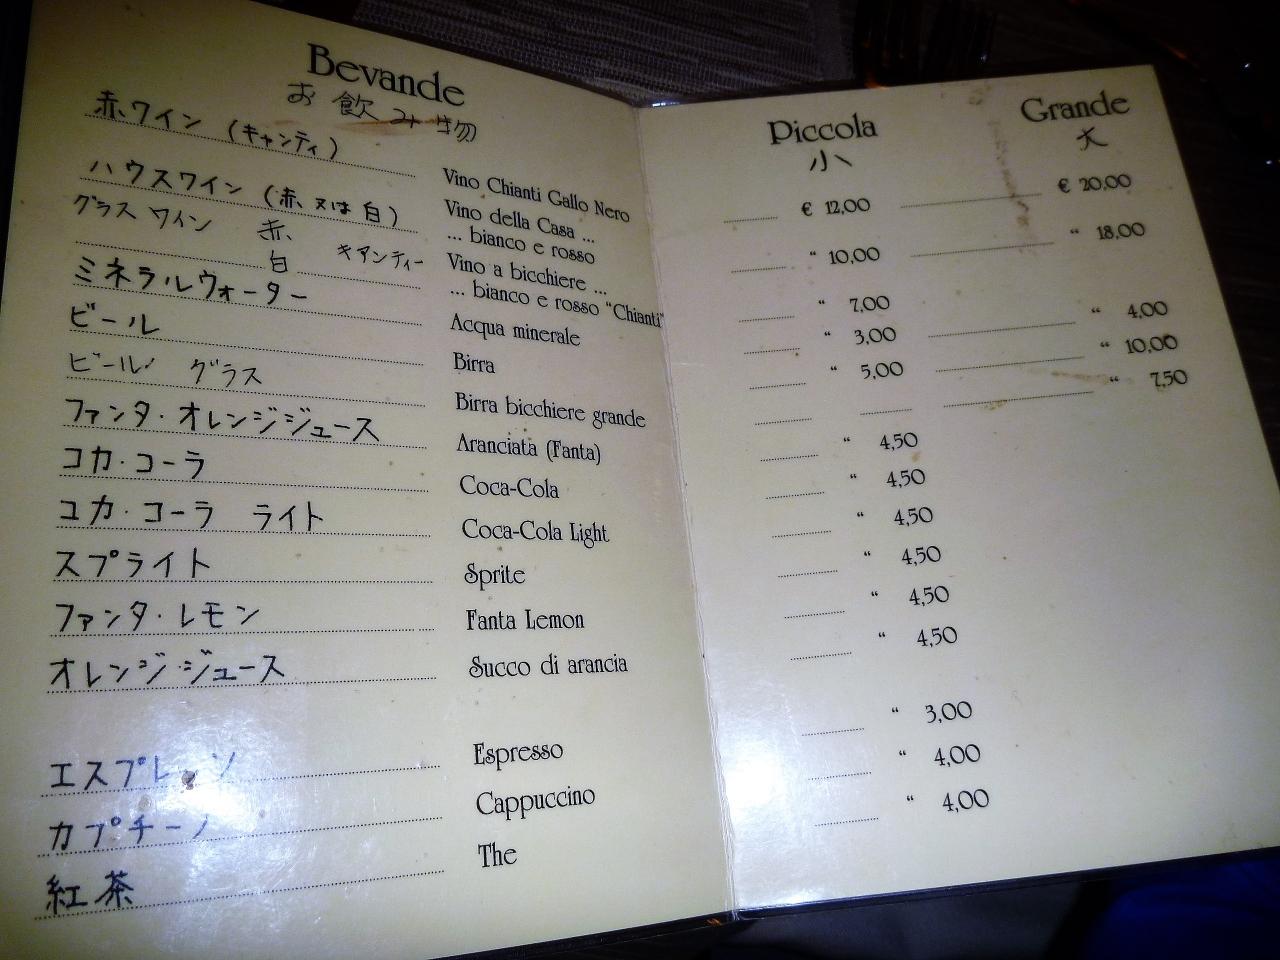 Bevande
お飲み物
Piccola
小
Grande
大
赤ワイン (キャンティ)
Vino Chianti Gallo Nero
€ 12,00
€ 20,00
ハウスワイン (赤、又は白)
Vino della Casa ...
... bianco e rosso
“ 10,00
“ 18,00
グラスワイン 赤、
白
キアンティー
Vino a bicchiere ...
... bianco e rosso “Chianti”
“ 7,00
ミネラルウォーター
Acqua minerale
“ 3,00
“ 4,00
ビール
Birra
“ 5,00
“ 10,00
ビール グラス
Birra bicchiere grande
“ 7,50
ファンタ・オレンジジュース
Aranciata (Fanta)
“ 4,50
コカ・コーラ
Coca-Cola
“ 4,50
コカ・コーラ ライト
Coca-Cola Light
“ 4,50
スプライト
Sprite
“ 4,50
ファンタ・レモン
Fanta Lemon
“ 4,50
オレンジ・ジュース
Succo di arancia
“ 4,50
エスプレッソ
Espresso
“ 3,00
カプチーノ
Cappuccino
“ 4,00
紅茶
The
“ 4,00